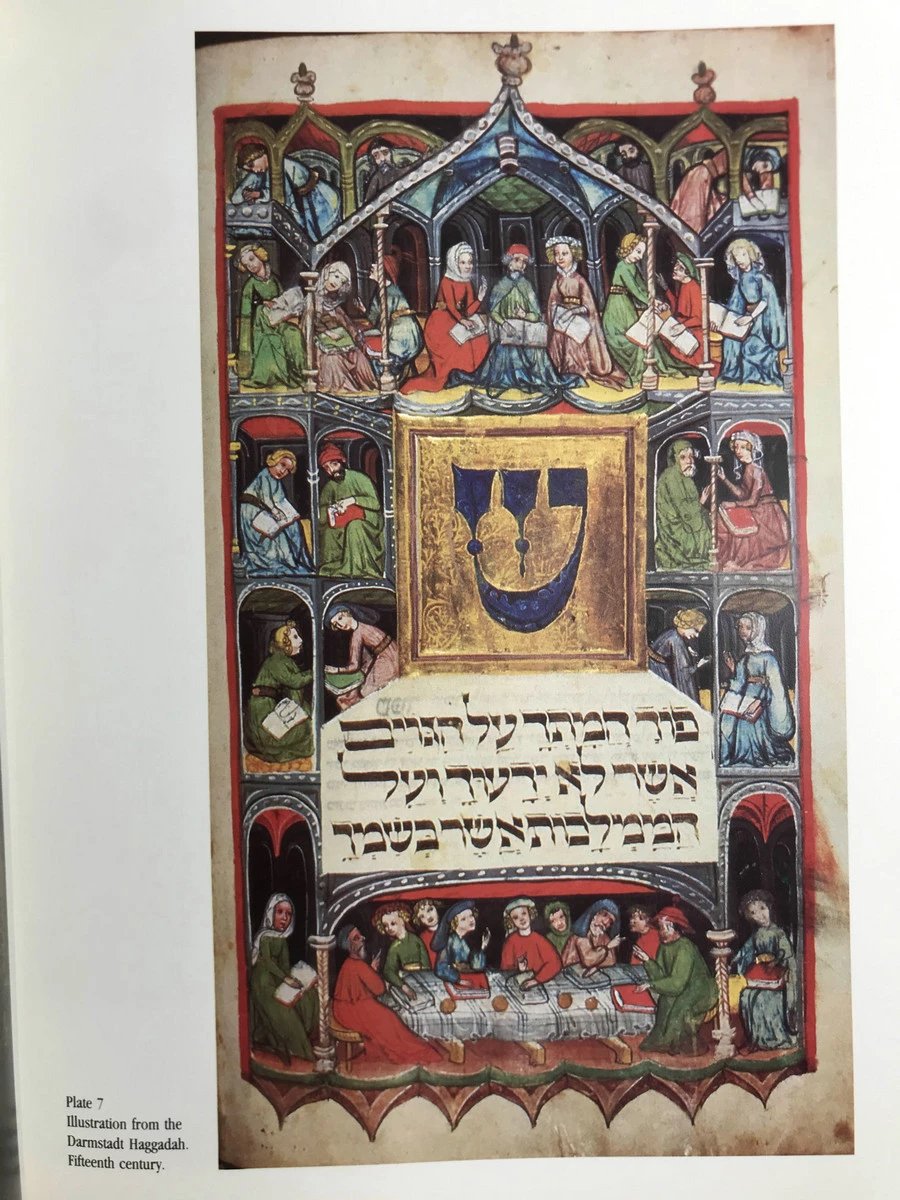 ש
פוך חמתך על הגוים
אשר לא ידעוך ועל
הממלכות אשר בשמך
Plate 7
Illustration from the
Darmstadt Haggadah.
Fifteenth century.